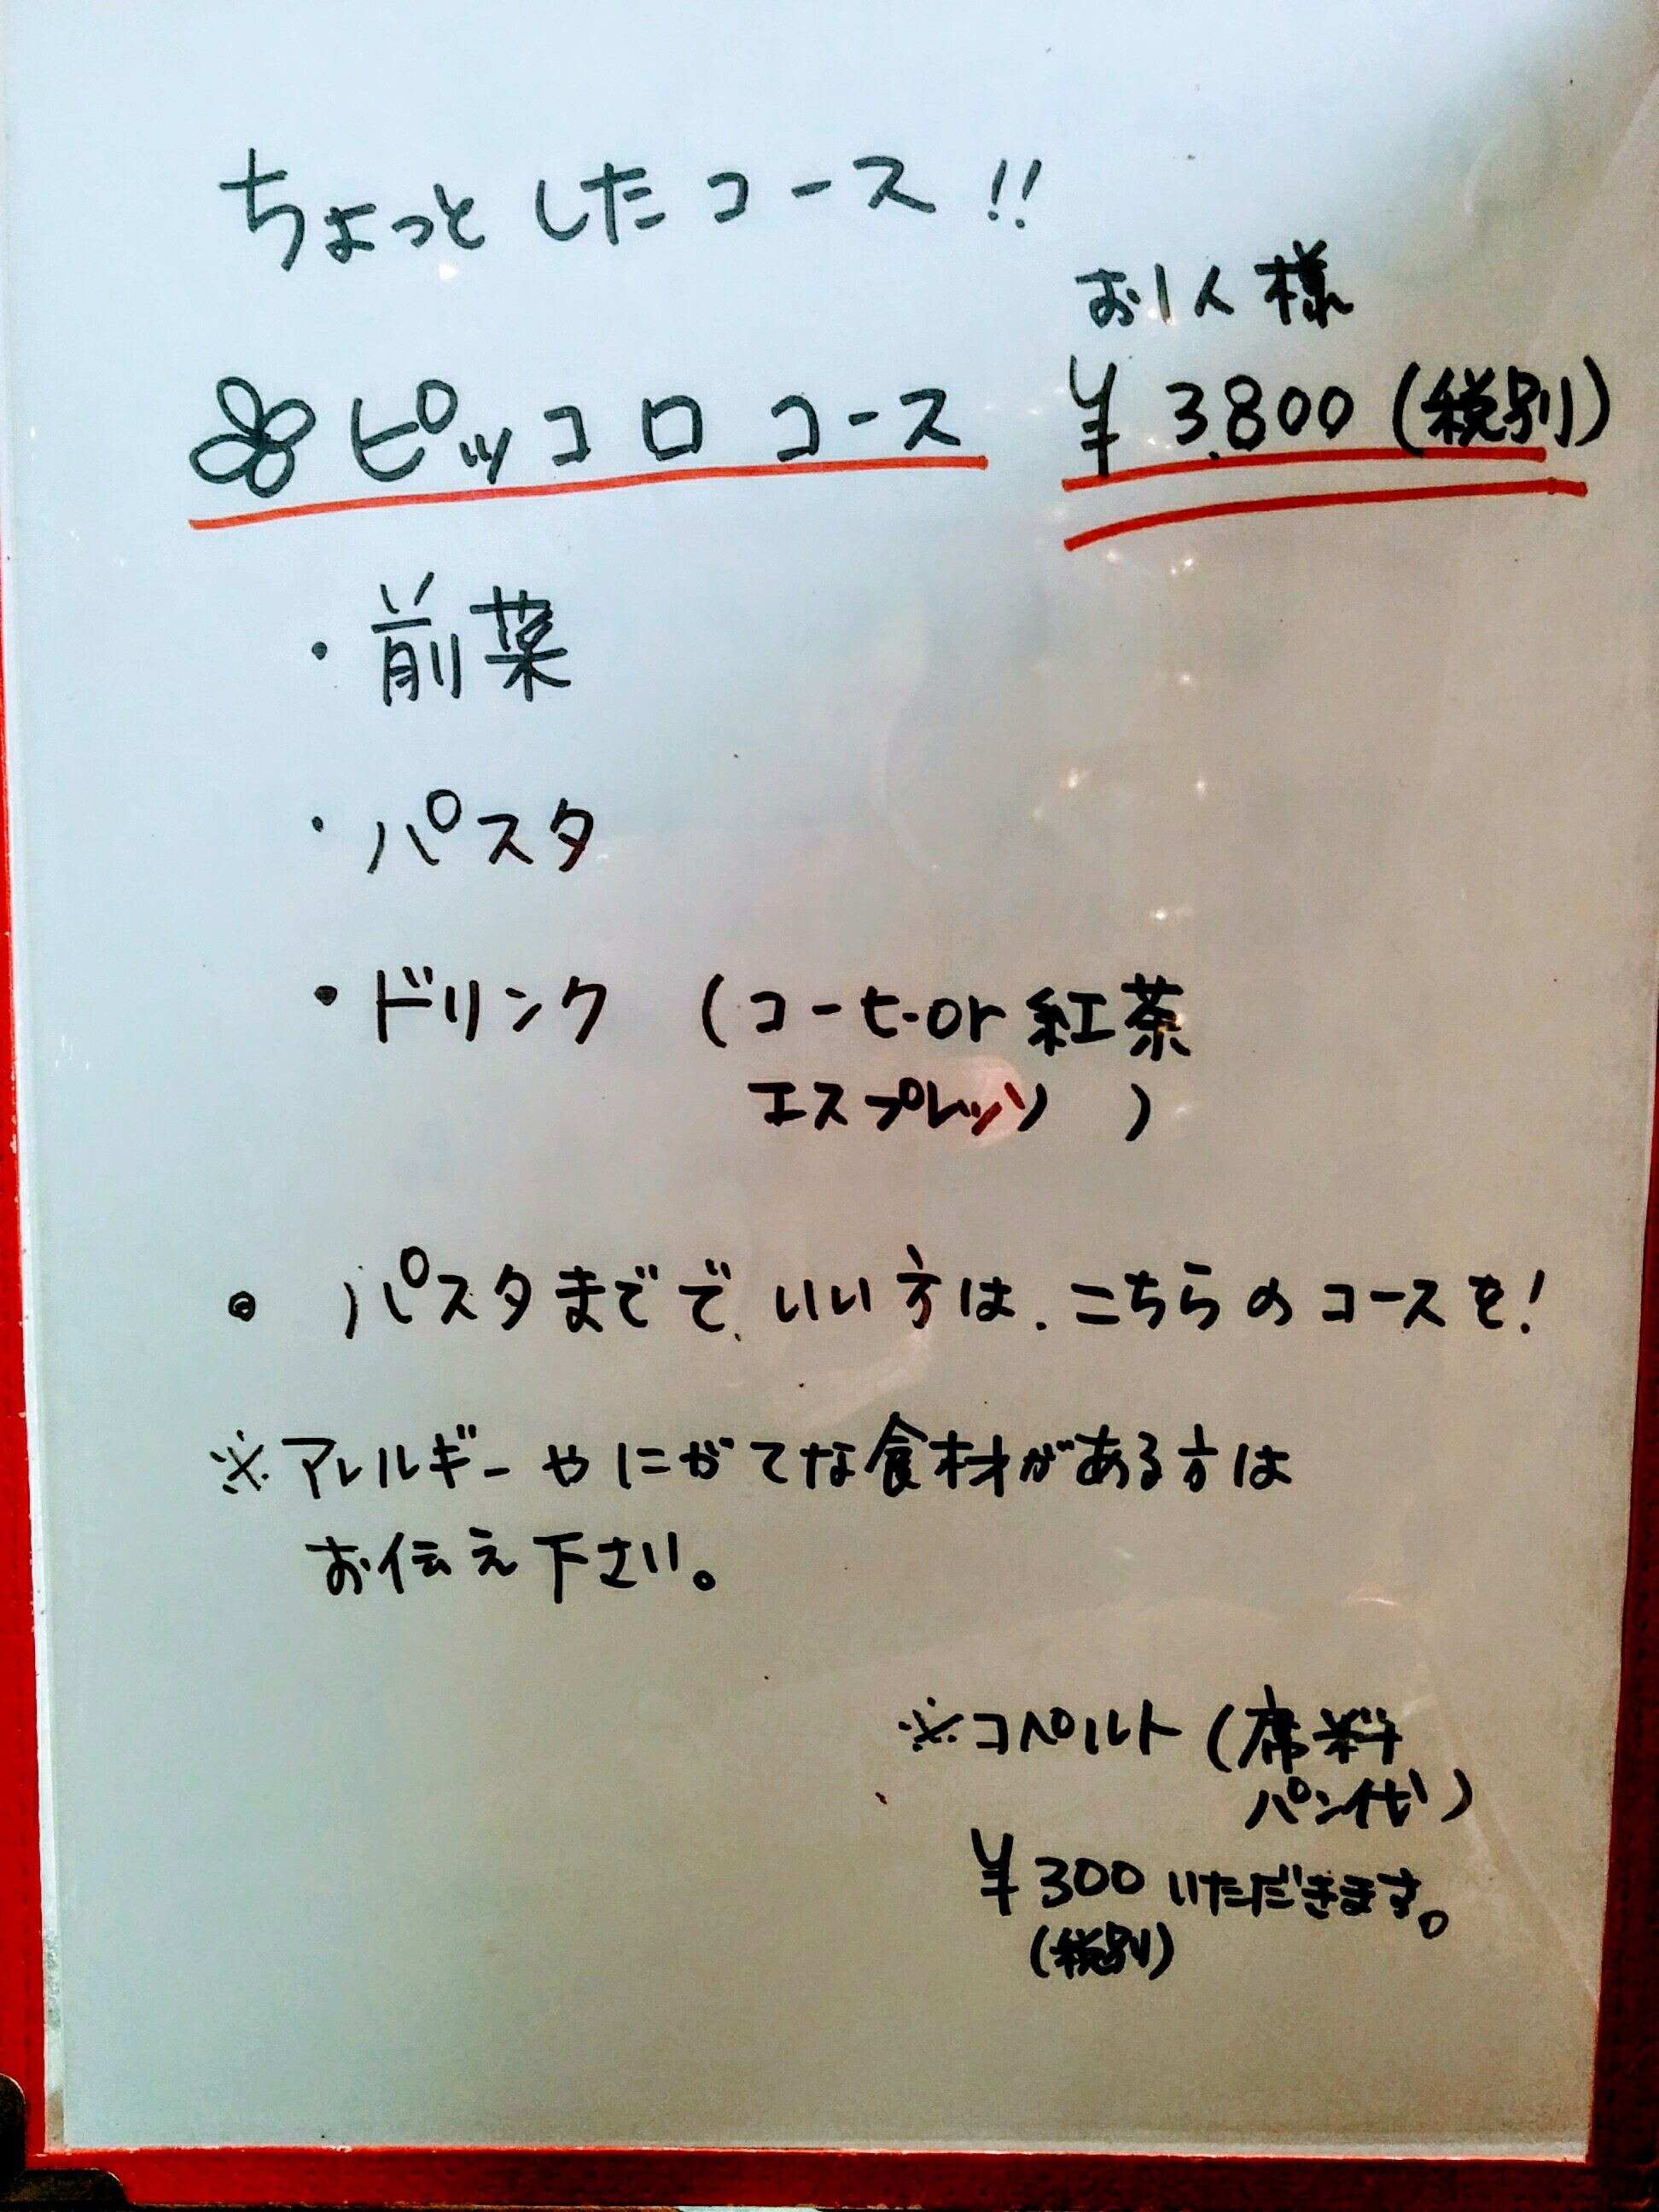 ちょっとしたコース!!
お1人様
ピッコロコース ¥3.800(税別)
・前菜
・パスタ
・ドリンク (コーヒーor紅茶
エスプレッソ)
◎ パスタまでで、いい方は、こちらのコースを!
※アレルギーやにがてな食材がある方は
お伝え下さい。
※コペルト(席料
パン代)
¥300いただきます。
(税別)